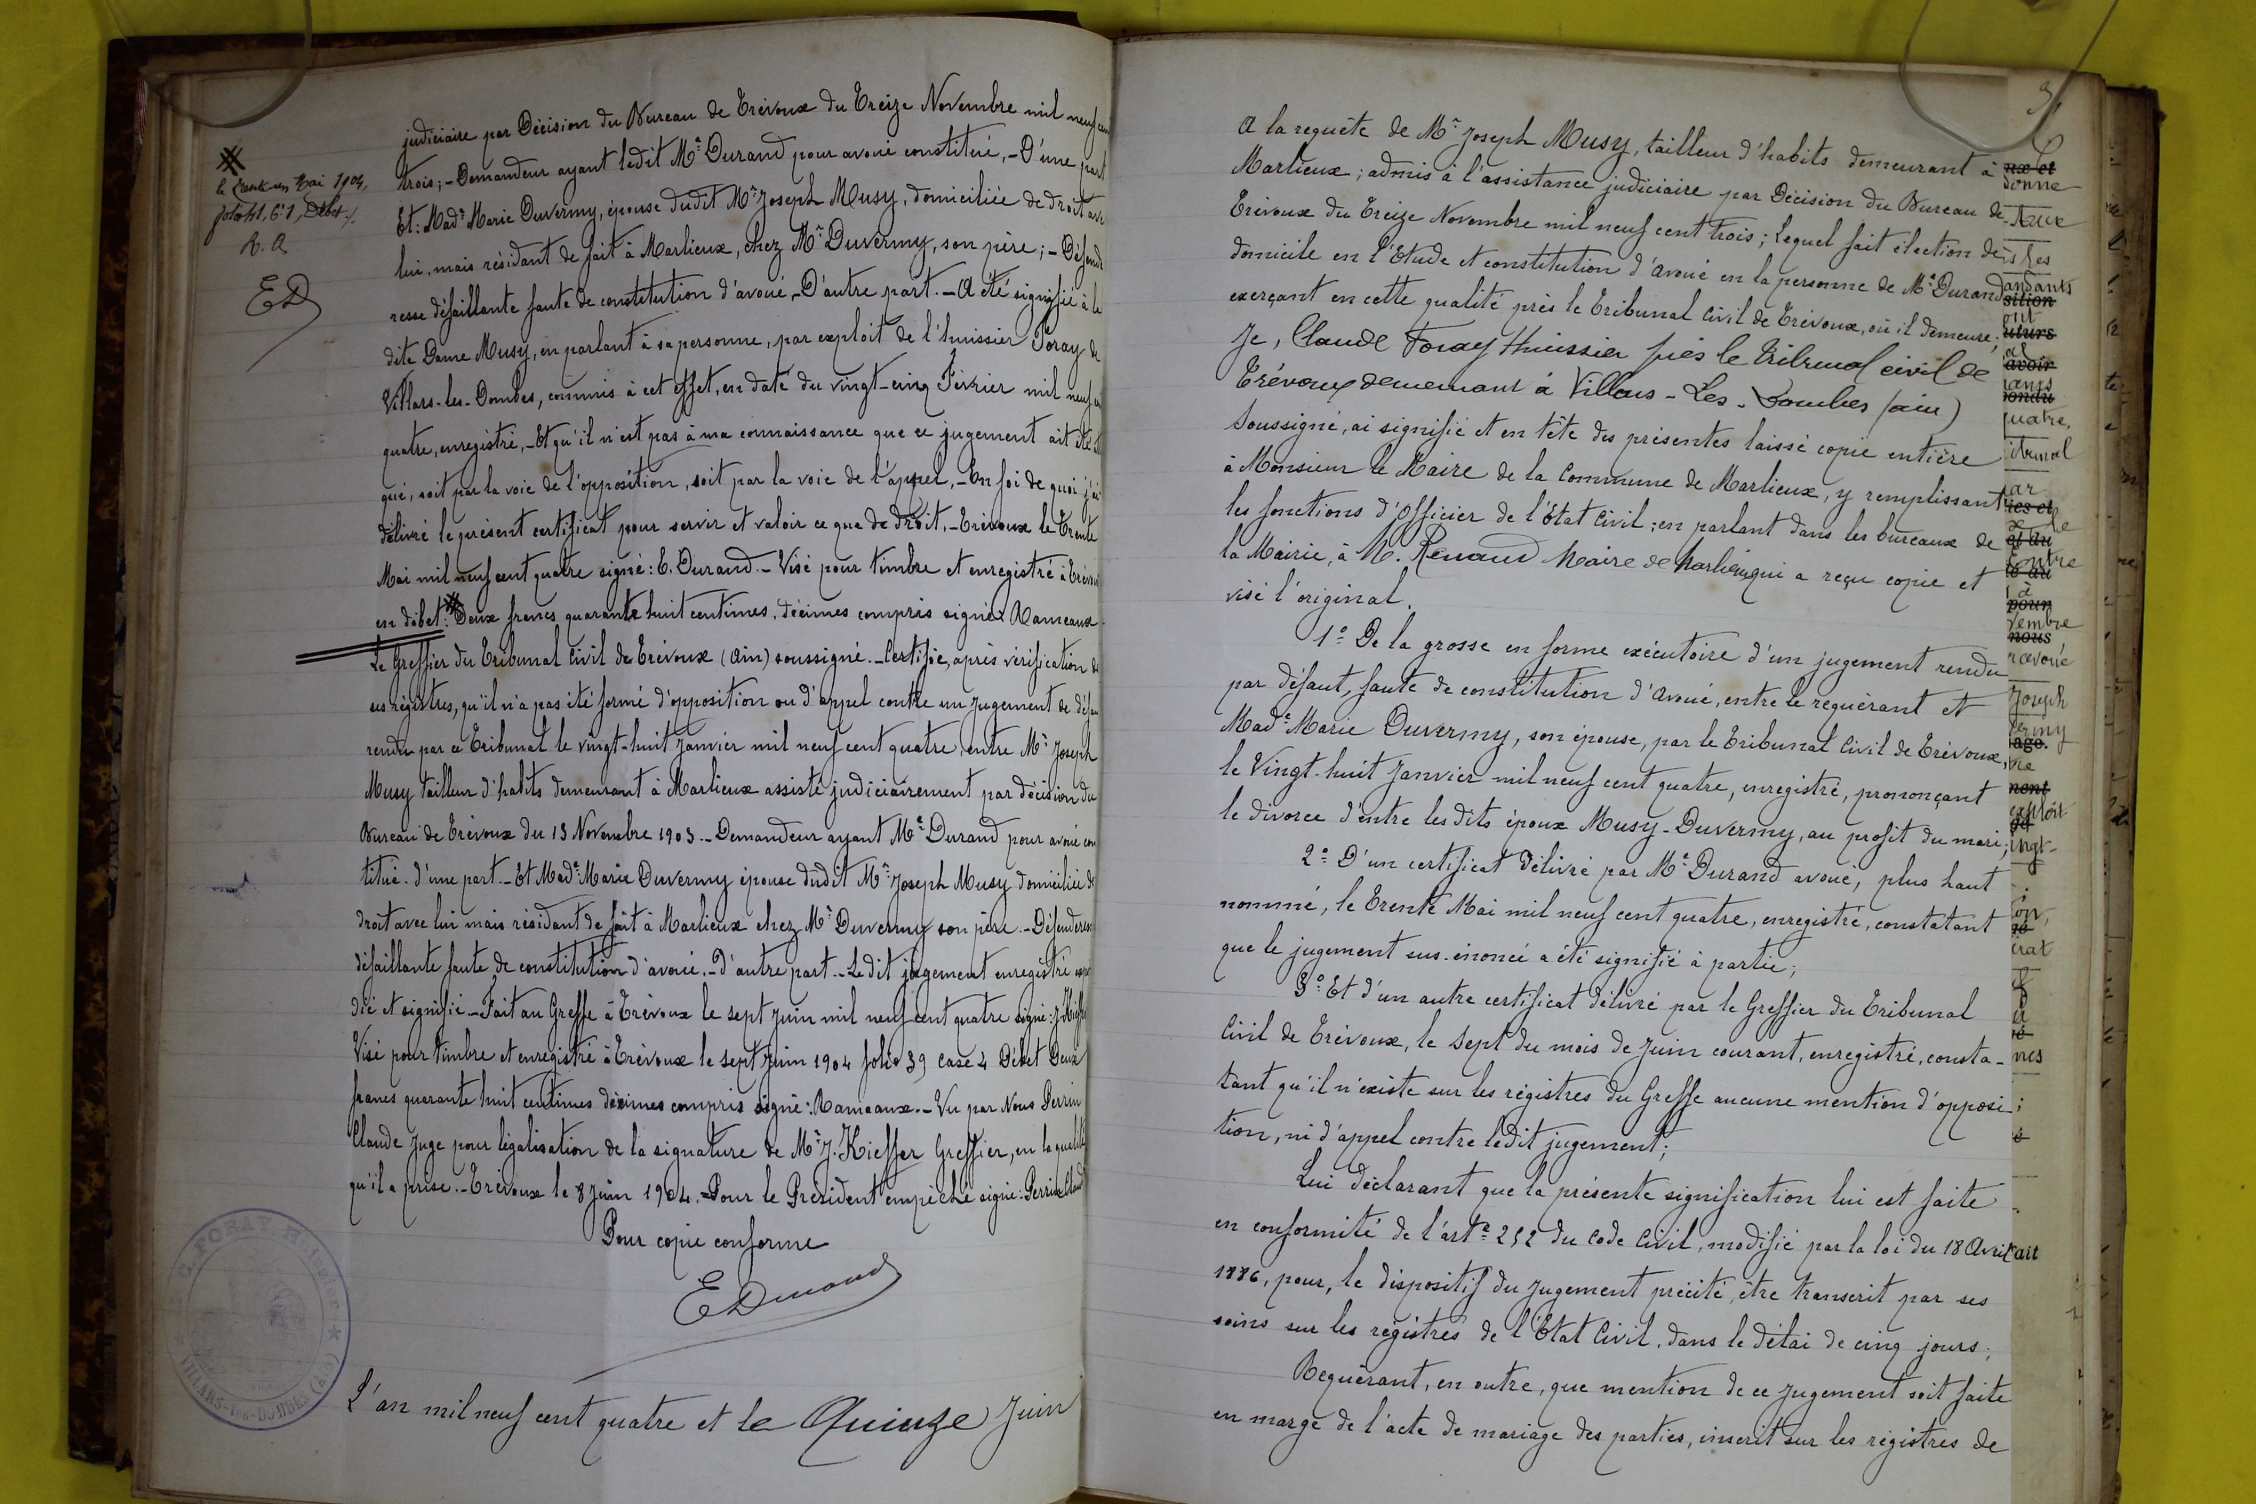 le trente un Mai 1904,
folo 41, C 1, Débet /.
R. A
ED
judiciaire par Décision du Bureau de Trévoux du Treize Novembre mil neuf cent
trois ; - Demandeur ayant ledit Me Durand pour avoué constitué, - D'une part
Et : Made Marie Duvermy, épouse dudit Mr Joseph Musy, domiciliée de droit avec
lui, mais résidant de fait à Marlieux, chez Mr Duvermy, son père ; - Défende
resse défaillante faute de constitution d'avoué, - D'autre part. - A été signifié à la
dite Dame Musy, en parlant à sa personne, par exploit de l'huissier Foray de
Villars-les-Dombes, commis à cet effet, en date du vingt-cinq Février mil neuf cent
quatre, enregistré, - Et qu'il n'est pas à ma connaissance que ce jugement ait été
qué, soit par la voie de l'opposition, soit par la voie de l'appel, - En foi de quoi j'ai
délivré le présent certificat pour servir et valoir ce que de droit. - Trévoux le Trente
Mai mil neuf cent quatre signé : E. Durand. - Visé pour timbre et enregistré à Trévoux
en débet : Deux francs quarante huit centimes, décimes compris signé : Rameaux.
Le Greffier du Tribunal Civil de Trévoux (Ain) soussigné. - Certifie, après vérification de
ses régistres, qu'il n'a pas été formé d'opposition ou d'appel contre un jugement de défaut
rendu par ce Tribunal le vingt-huit Janvier mil neuf cent quatre, entre Mr Joseph
Musy tailleur d'habits demeurant à Marlieux assisté judiciairement par décision du
Bureau de Trévoux du 13 Novembre 1903. - Demandeur ayant Me Durand pour avoué cons
titué. d'une part. - Et Made Marie Duvermy épouse dudit Mr Joseph Musy domiciliée de
droit avec lui mais résidant de fait à Marlieux chez Mr Duvermy son père. - Défenderesse
défaillante faute de constitution d'avoué. - D'autre part. - Ledit jugement enregistré expé
dié et signifié. - Fait au Greffe à Trévoux le sept Juin mil neuf cent quatre signé : J. Kieffer
Visé pour timbre et enregistré à Trévoux le sept Juin 1904 folio 39 case 4 Débet Deux
francs quarante huit centimes décimes compris signé : Rameaux. - Vu par Nous Perrin
Claude Juge pour légalisation de la signature de Mr J. Kieffer Greffier, en la qualité
qu'il a prise. - Trévoux le 8 Juin 1904. - Pour le Président empêché signé : Perrin Claude
Pour copie conforme
EDurand
C. FORAY, Huissier
VILLARS-les-DOMBES (Ain)
L'an mil neuf cent quatre et le Quinze Juin
A la requête de Mr Joseph Musy, tailleur d'habits demeurant à
Marlieux ; admis à l'assistance judiciaire par Décision du Bureau de
Trévoux du Treize Novembre mil neuf cent trois ; Lequel fait élection de
domicile en l'Etude et constitution d'avoué en la personne de Me Durand
exerçant en cette qualité près le Tribunal Civil de Trévoux, où il demeure ;
Je, Claude Foray Huissier près le tribunal civil de
Trévoux demeurant à Villars-Les-Dombes (ain)
Soussigné, ai signifié et en tête des présentes laissé copie entière
à Monsieur le Maire de la Commune de Marlieux, y remplissant
les fonctions d'Officier de l'Etat Civil ; en parlant dans les bureaux de
la Mairie, à M. Renaud Maire de Marlieux qui a reçu copie et
visé l'original.
1° De la grosse en forme exécutoire d'un jugement rendu
par défaut, faute de constitution d'avoué, entre le requérant et
Made Marie Duvermy, son épouse, par le Tribunal Civil de Trévoux,
le Vingt-huit Janvier mil neuf cent quatre, enregistré, prononçant
le divorce d'entre lesdits époux Musy-Duvermy, au profit du mari ;
2° D'un certificat délivré par Me Durand avoué, plus haut
nommé, le Trente Mai mil neuf cent quatre, enregistré, constatant
que le jugement sus-énoncé a été signifié à partie ;
3° Et d'un autre certificat délivré par le Greffier du Tribunal
Civil de Trévoux, le Sept du mois de Juin courant, enregistré, consta-
tant qu'il n'existe sur les régistres du Greffe aucune mention d'opposi
tion, ni d'appel contre ledit jugement ;
Lui déclarant que la présente signification lui est faite
en conformité de l'arte 252 du Code Civil, modifié par la loi du 18 Avril
1886, pour, le dispositif du jugement précité, être transcrit par ses
soins sur les régistres de l'Etat Civil, dans le délai de cinq jours ;
Requérant, en outre, que mention de ce jugement soit faite
en marge de l'acte de mariage des parties, inscrit sur les régistres de